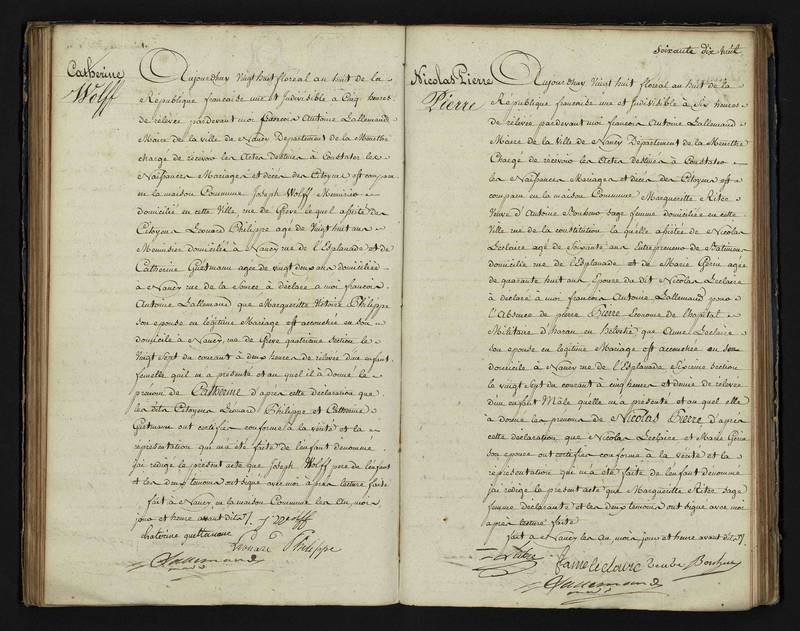 Catherine
Wolff
Aujourdhuy Vingt huit floreal an huit de la
République francaise une et Indivisible à Cinq heures
de relevée pardevant moi francois Antoine Lallemand
Maire de la ville de Nancy Département de la Meurthe
chargé de recevoir les Actes destinés à Constater les
Naissances Mariages et décès des Citoyens est comparu
en la maison Commune Joseph Wolff Menuisier
domicilié en cette Ville, rue de Grève lequel assisté des
Citoyens Léonard Philippe agé de Vingt huit ans
Menuisier domicilié à Nancy rue de l'Esplanade et de
Catherine Guetmann agée de vingt deux ans domiciliée
à Nancy rue de la a déclaré à moi francois
Antoine Lallemand que Marguerite Victoire Philippe
son epouse en légitime Mariage est accouchée en son
domicile à Nancy, rue de Grève quatrieme section le
Vingt Sept du courant à deux heures de relevée d'un enfant
femelle qu'il m'a présenté et au quel il a donné le
prenom de Catherine d'après cette déclaration que
les dits Citoyens Léonard Philippe et Catherine
Guetmann ont certifiés conforme à la vérité et la
représentation qui m'a été faite de l'enfant dénommé
jai rédigé le present acte que Joseph Wolff pere de l'enfant
et les deux temoins ont signé avec moi après lecture faite
fait à Nancy, en la maison Commune les an, mois
jour et heure avant dits /. j. wolff
Leonard Philippe
Lallemand
soixante dix huit
Nicolas Pierre
Pierre
Aujourdhuy Vingt huit floreal an huit de la
République francaise une et Indivisible à Six heures
de relevée pardevant moi francois Antoine Lallemand
Maire de la Ville de Nancy Département de la Meurthe
Chargé de recevoir les Actes destinés à Constater
les Naissances Mariages et décès des Citoyens est
comparu en la maison Commune Marguerite
Veuve d'Antoine sage femme domiciliée en cette
Ville rue de la constitution la quelle assistée de Nicolas
Leclaire agé de Soixante ans Entrepreneur de Batimens
domicilié rue de l'Esplanade et de Marie agée
de quarante huit ans Epouse du dit Nicolas Leclaire
à déclaré à moi francois Antoine Lallemand pour
l'Absence de pierre Pierre Econome de l'hopital
Militaire en Helvétie que Anne Leclaire
son epouse en legitime Mariage est accouchée en son
domicile à Nancy rue de l'Esplanade Sixieme section
le vingt Sept du courant à cinq heures et demie de relevée
d'un enfant Mâle qu'elle m'a présenté et au quel elle
à donné les prenoms de Nicolas Pierre d'après
cette declaration que Nicolas Leclaire et Marie
son epouse ont certifiés conforme à la vérité et la
représentation qui m'a été faite de l'enfant dénommé
jai redigé le present acte que Marguerite sage
femme déclarante et les deux temoins ont signé avec moi
après lecture faite
fait à Nancy les an, mois jour et heure avant dits /.
Leclaire
Lallemand